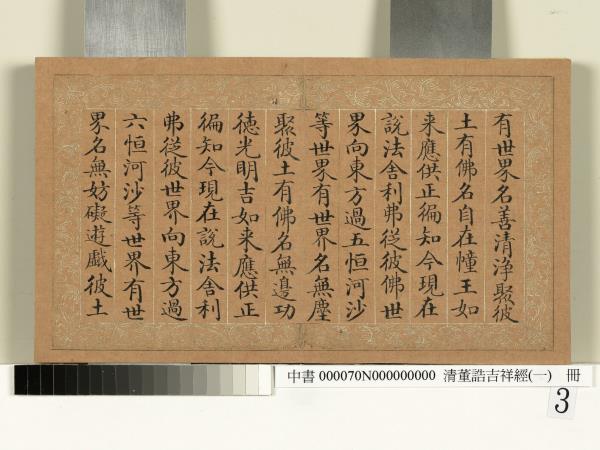 有世界名善清淨聚彼
土有佛名自在幢王如
来應供正徧知今現在
說法舍利弗從彼佛世
界向東方過五恒河沙
等世界有世界名無塵
聚彼土有佛名無邊功
德光明吉如来應供正
徧知今現在說法舍利
弗從彼世界向東方過
六恒河沙等世界有世
界名無妨礙遊戲彼土
中書 000070N000000000 清董誥吉祥經(一) 冊
3